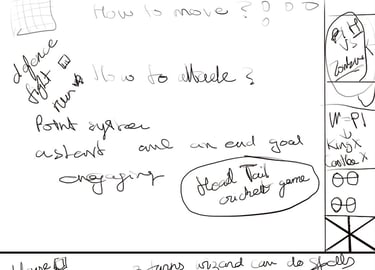 How to move?
defence
fight
run
How to attack?
Point system
a start and an end goal
engaging
Head Tail
cricket game
P H
Vs
Zombie
King X
3 turns wizard can do spells